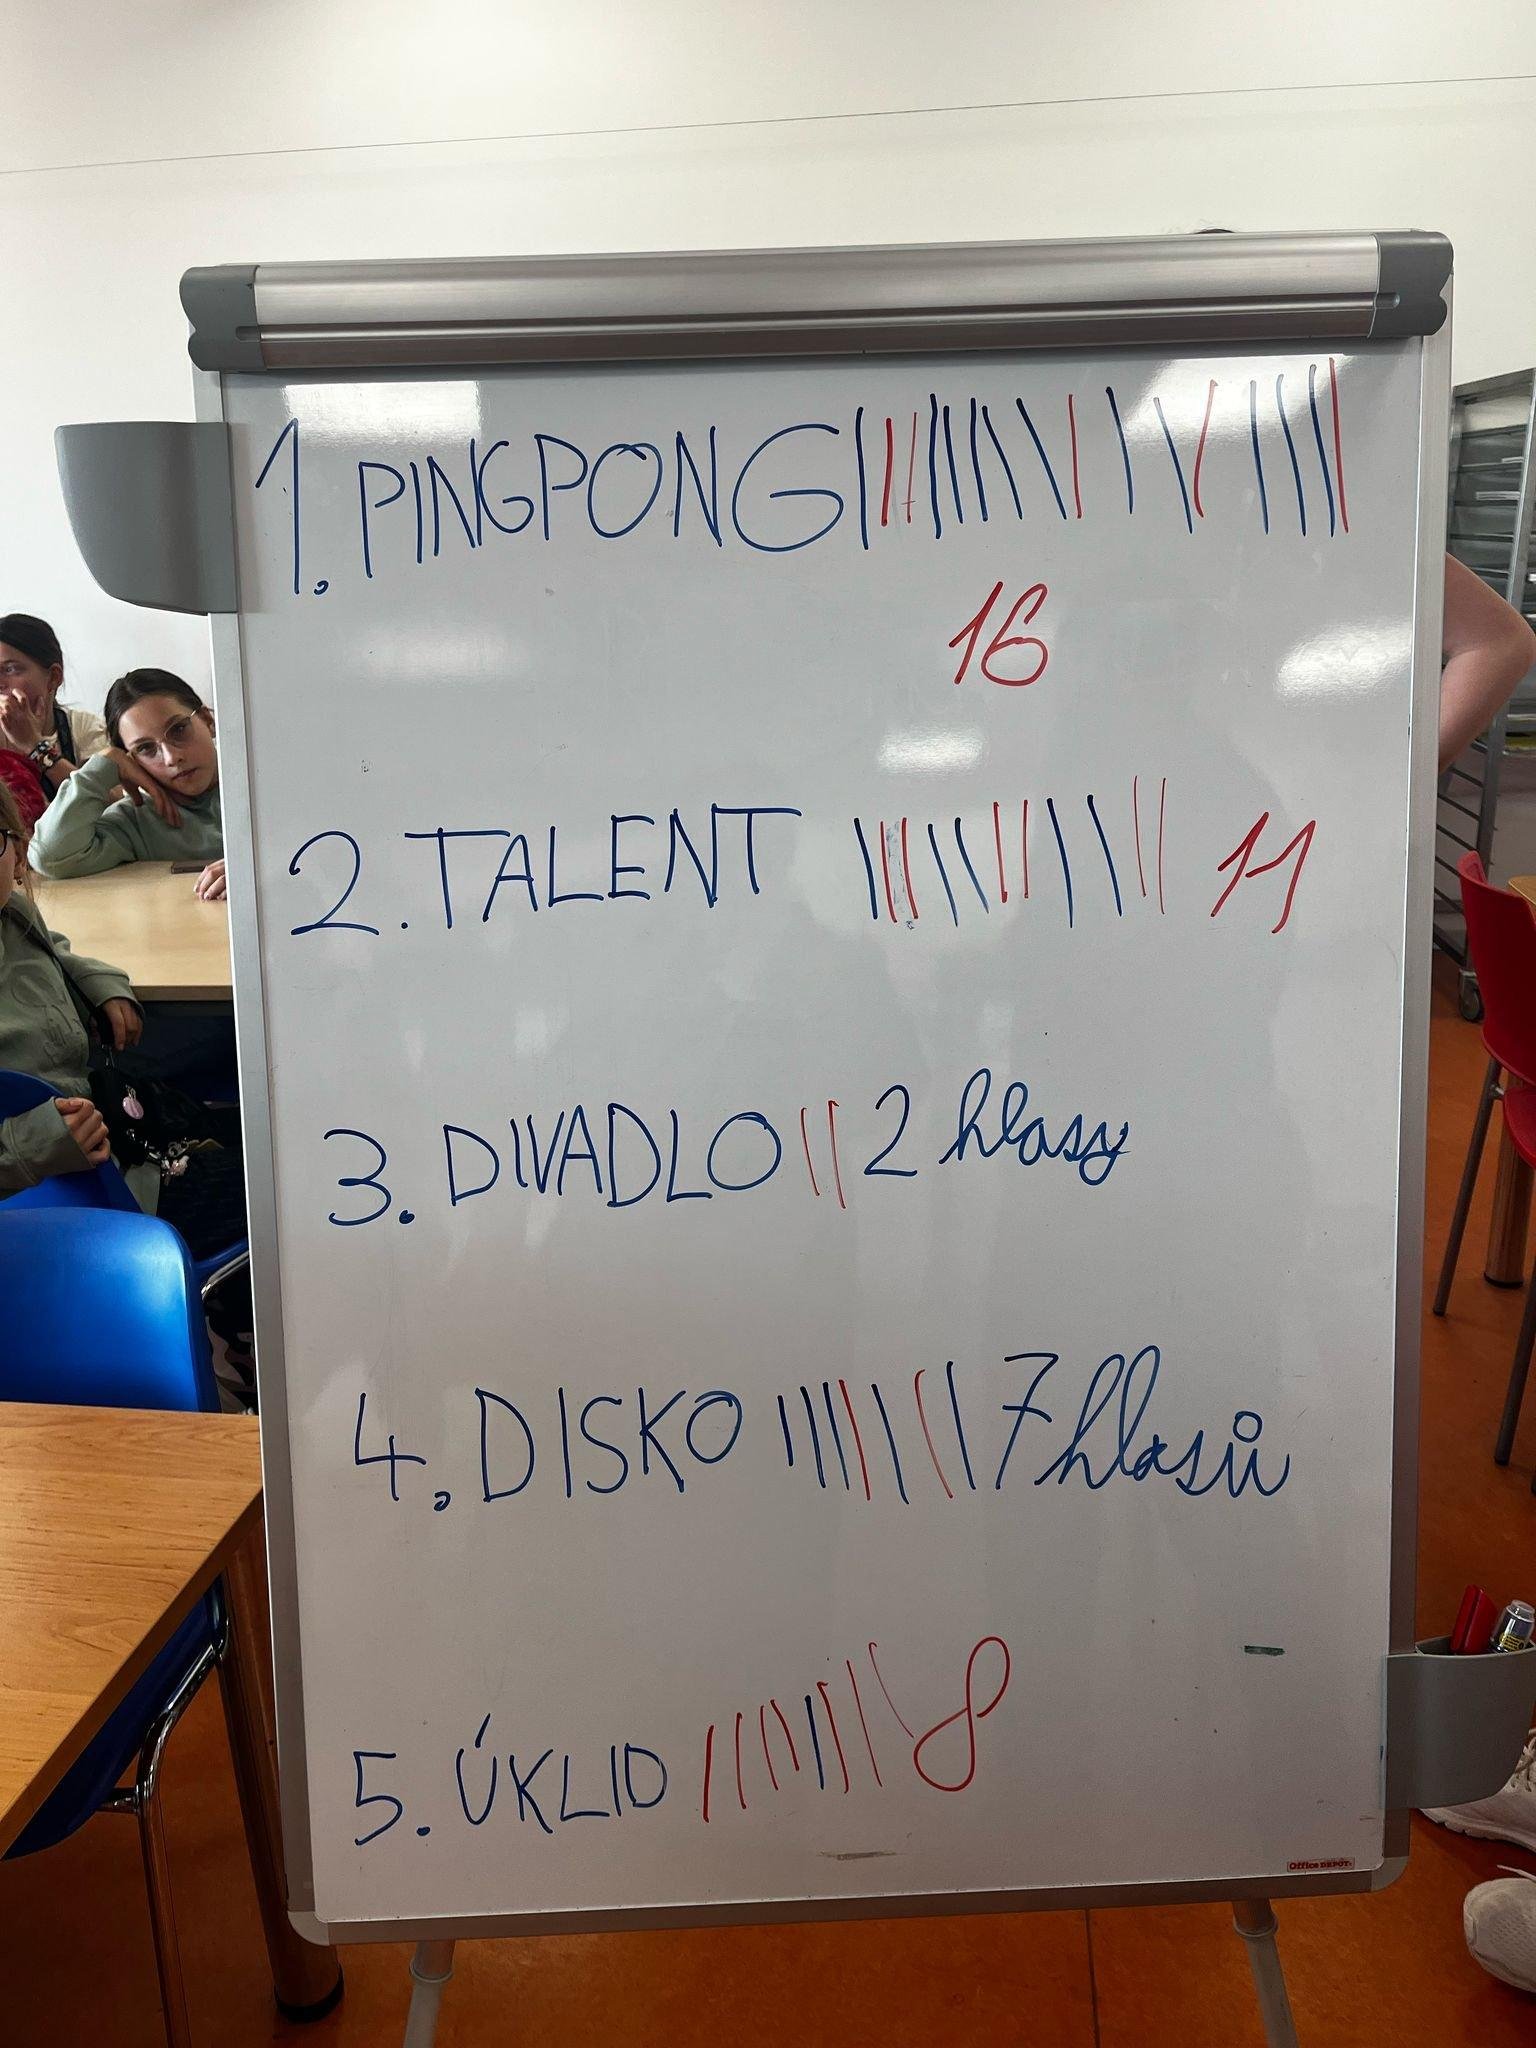 1. PINGPONG
16
2. TALENT 11
3. DIVADLO 2 hlasy
4. DISKO 7 hlasů
5. ÚKLID 8
Office DEPOT